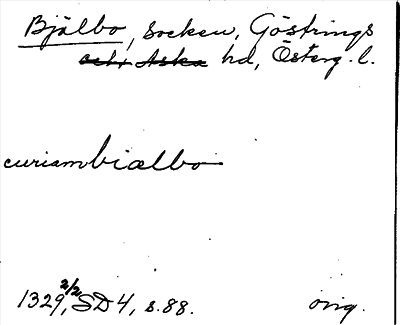 Bjälbo, socken, Göstrings
och Aska hd, Österg. l.
curiam biælbo
1329 2/2, SD 4, s. 88. orig.